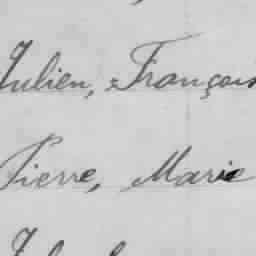 Julien, François
Pierre, Marie